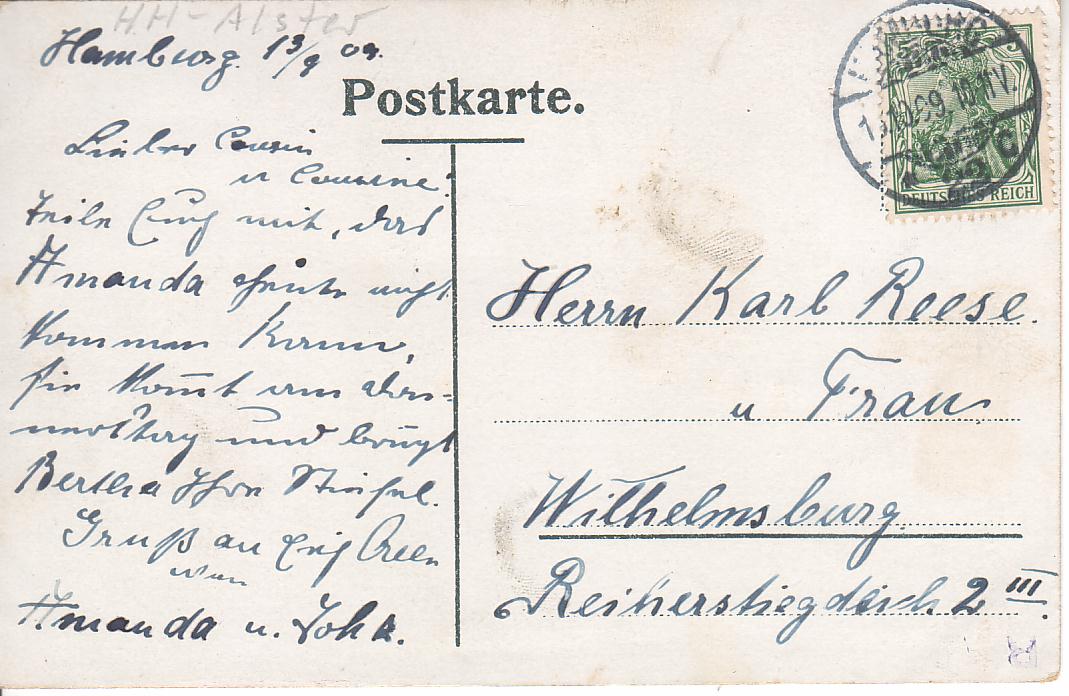 HH-Alster
Hamburg. 13/9 09.
Postkarte.
Lieber Cousin
u Cousine!
Teile Euch mit, daß
Amanda heute nicht
kommen kann,
sie kom̄t am Don=
nerstag und bringt
Bertha Ihre Stiefel.
Gruß an Euch Allen
von
Amanda u. Joh
5
DEUTSCHES REICH
Herrn Karl Reese.
u Frau
Wilhelmsburg.
Reiherstiegdeich 2 III.